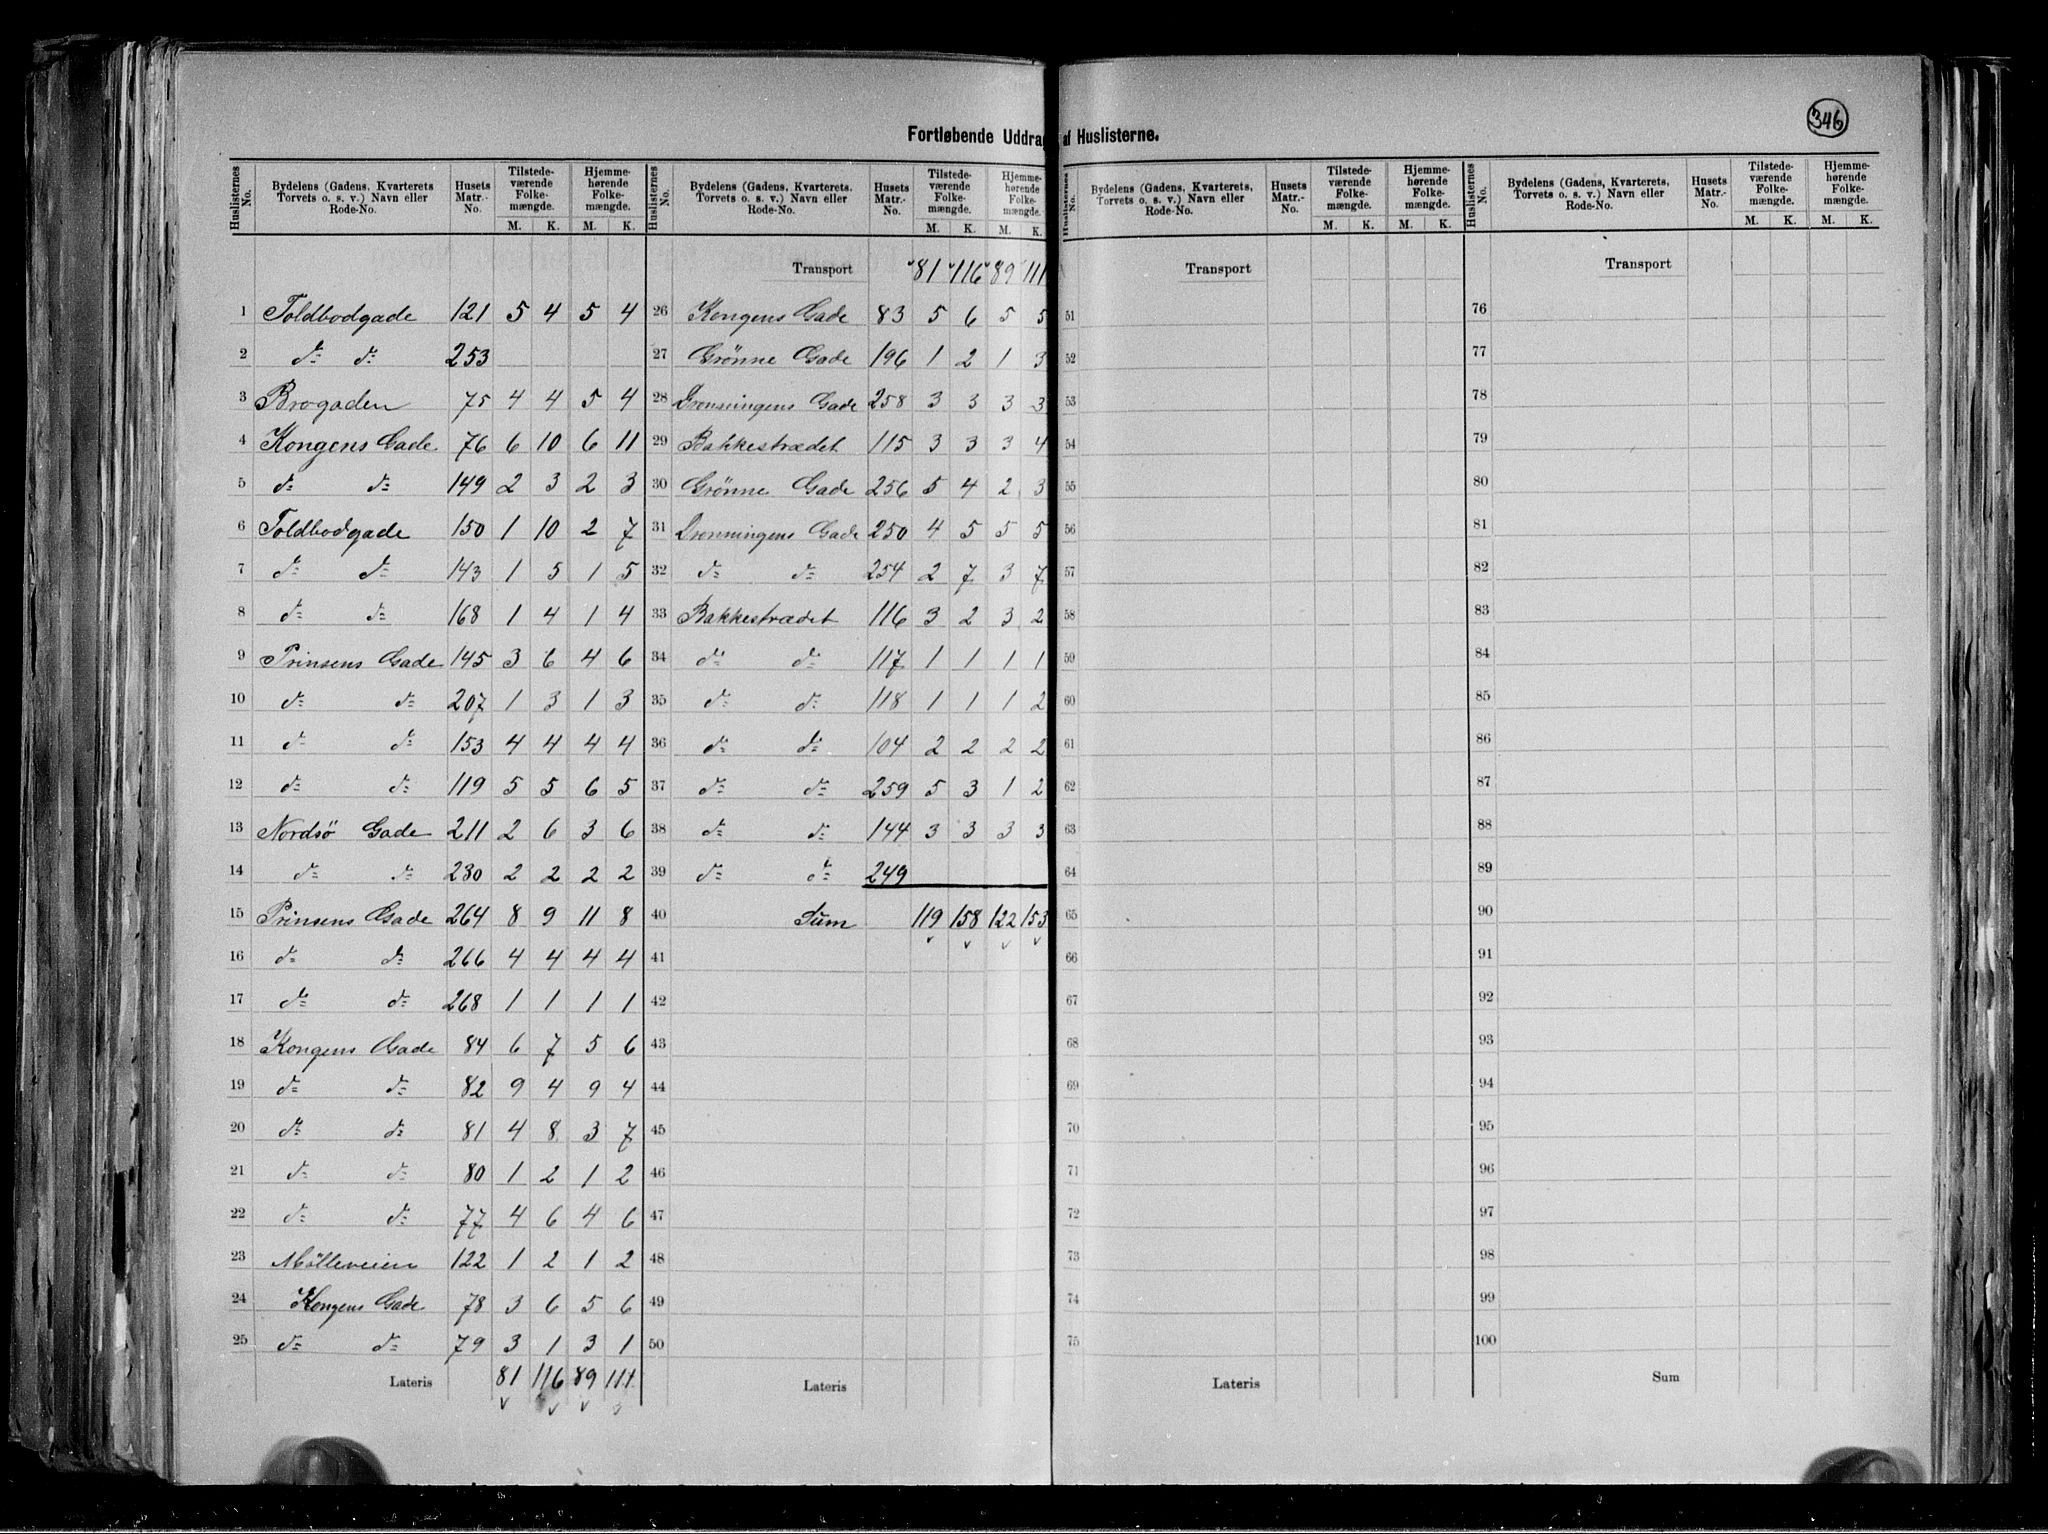 346
Fortløbende Uddrag af Huslisterne.
Huslisternes No. | Bydelens (Gadens, Kvarterets Torvets o. s. v.) Navn eller Rode-No. | Husets Matr.-No. | Tilstedeværende Folkemængde. M. K. | Hjemmehørende Folkemængde. M. K.
1 Toldbodgade 121 5 4 5 4
2 do do 253
3 Brogaden 75 4 4 5 4
4 Kongens Gade 76 6 10 6 11
5 do do 149 2 3 2 3
6 Toldbodgade 150 1 10 2 7
7 do do 143 1 5 1 5
8 do do 168 1 4 1 4
9 Prinsens Gade 145 3 6 4 6
10 do do 207 1 3 1 3
11 do do 153 4 4 4 4
12 do do 119 5 5 6 5
13 Nordsö Gade 211 2 6 3 6
14 do do 230 2 2 2 2
15 Prinsens Gade 264 8 9 11 8
16 do do 266 4 4 4 4
17 do do 268 1 1 1 1
18 Kongens Gade 84 6 7 5 6
19 do do 82 9 4 9 4
20 do do 81 4 8 3 7
21 do do 80 1 2 1 2
22 do do 77 4 6 4 6
23 Mölleveien 122 1 2 1 2
24 Kongens Gade 78 3 6 5 6
25 do do 79 3 1 3 1
Lateris 81 116 89 111
Huslisternes No. | Bydelens (Gadens, Kvarterets, Torvets o. s. v.) Navn eller Rode-No. | Husets Matr.-No. | Tilstedeværende Folkemængde. M. K. | Hjemmehørende Folkemængde. M. K.
Transport 81 116 89 111
26 Kongens Gade 83 5 6 5 5
27 Grönne Gade 196 1 2 1 3
28 Dronningens Gade 258 3 3 3 3
29 Bakkestrædet 115 3 3 3 4
30 Grönne Gade 256 5 4 2 3
31 Dronningens Gade 250 4 5 5 5
32 do do 254 2 7 3 7
33 Bakkestrædet 116 3 2 3 2
34 do do 117 1 1 1 1
35 do do 118 1 1 1 2
36 do do 104 2 2 2 2
37 do do 259 5 3 1 2
38 do do 144 3 3 3 3
39 do do 249
40 Sum 119 158 122 153
41
42
43
44
45
46
47
48
49
50
Lateris
Huslisternes No. | Bydelens (Gadens, Kvarterets, Torvets o. s. v.) Navn eller Rode-No. | Husets Matr.-No. | Tilstedeværende Folkemængde. M. K. | Hjemmehørende Folkemængde. M. K.
Transport
51
52
53
54
55
56
57
58
59
60
61
62
63
64
65
66
67
68
69
70
71
72
73
74
75
Lateris
Huslisternes No. | Bydelens (Gadens, Kvarterets, Torvets o. s. v.) Navn eller Rode-No. | Husets Matr.-No. | Tilstedeværende Folkemængde. M. K. | Hjemmehørende Folkemængde. M. K.
Transport
76
77
78
79
80
81
82
83
84
85
86
87
88
89
90
91
92
93
94
95
96
97
98
99
100
Sum